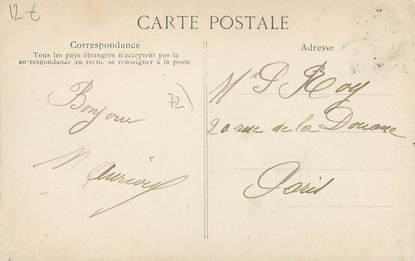 12 €
CARTE POSTALE
Correspondance
Tous les pays étrangers n'acceptent pas la
correspondance au recto, se renseigner à la poste.
Adresse
Bonjour
72)
M P Roy
20 rue de la Douane
Paris